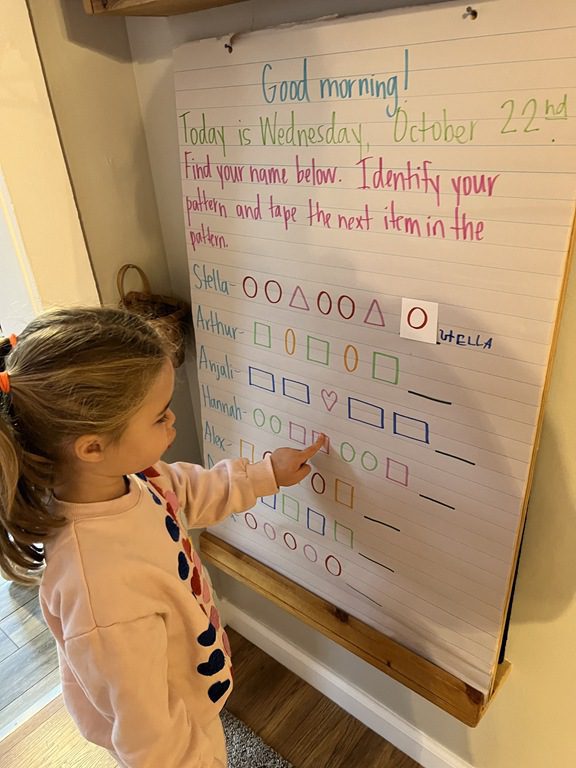 Good morning!
Today is Wednesday, October 22nd.
Find your name below. Identify your
pattern and tape the next item in the
pattern.
Stella-
STELLA
Arthur-
Anjali-
Hannah-
Alex-